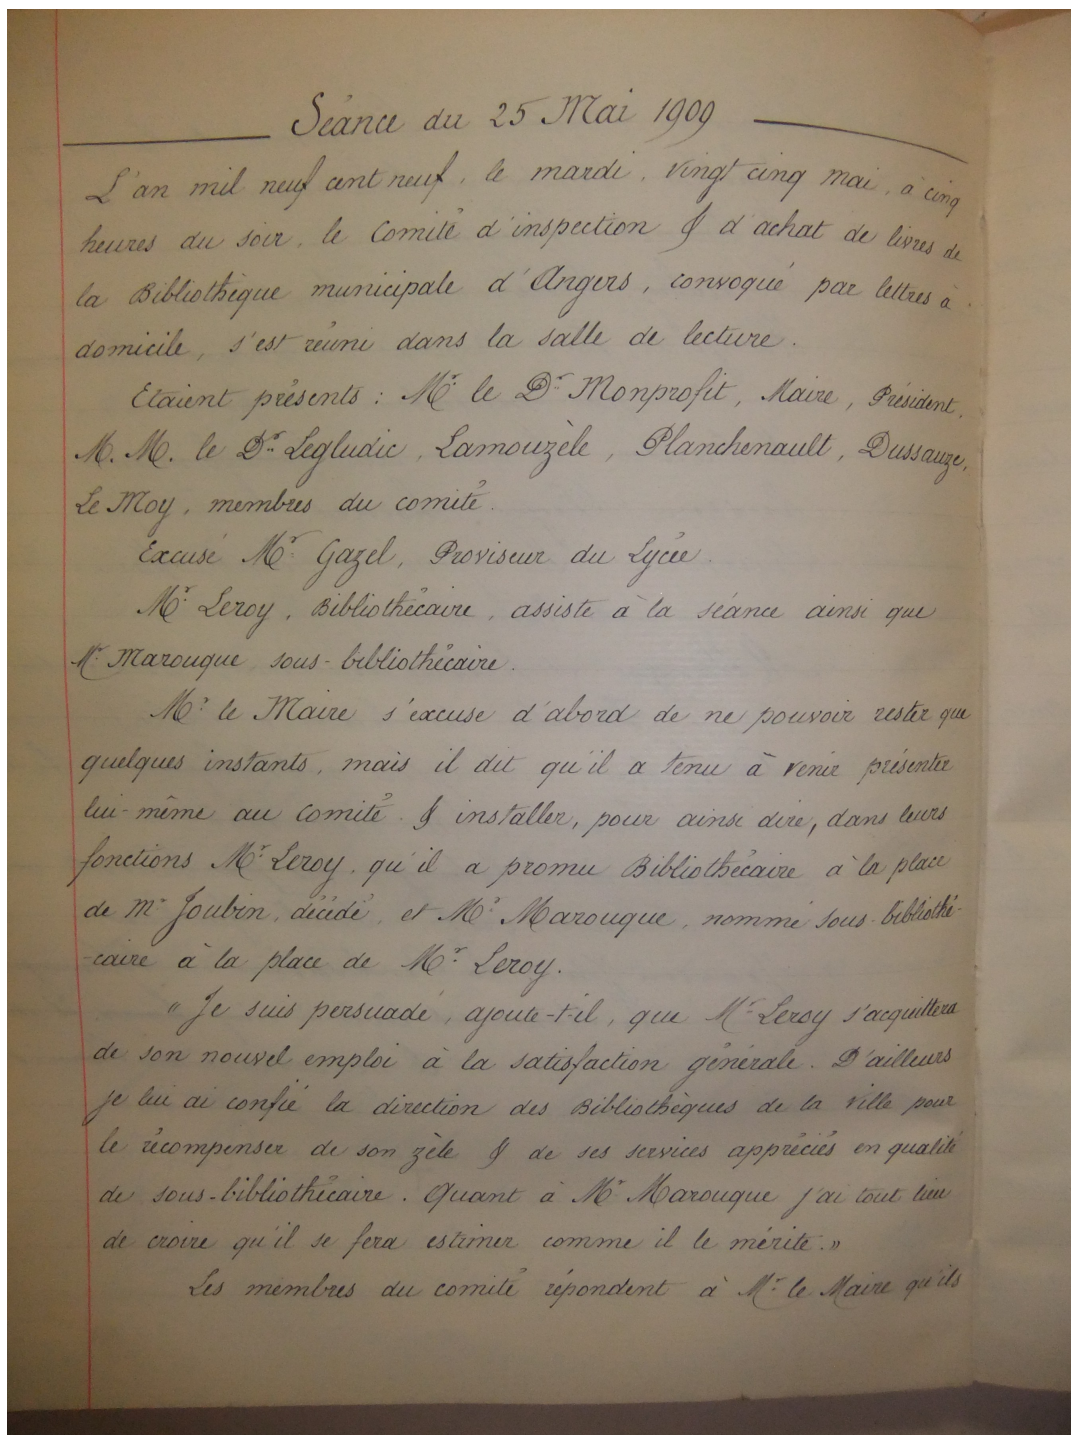 Séance du 25 Mai 1909
L'an mil neuf cent neuf, le mardi, vingt cinq mai, à cinq
heures du soir, le Comité d'inspection & d'achat de livres de
la Bibliothèque municipale d'Angers, convoqué par lettres à
domicile, s'est réuni dans la salle de lecture.
Etaient présents : Mr. le Dr. Monprofit, Maire, Président,
M. M. le Dr. Legludic, Lamouzèle, Planchenault, Dussauze,
Le Moy, membres du comité.
Excusé Mr. Gazel, Proviseur du Lycée.
Mr. Leroy, Bibliothécaire, assiste à la séance ainsi que
Mr. Marouque sous-bibliothécaire.
Mr. le Maire s'excuse d'abord de ne pouvoir rester que
quelques instants, mais il dit qu'il a tenu à venir présenter
lui-même au Comité & installer, pour ainsi dire, dans leurs
fonctions Mr. Leroy, qu'il a promu Bibliothécaire à la place
de Mr Joubin, décédé, et Mr. Marouque, nommé sous-bibliothé-
-caire à la place de Mr. Leroy.
" Je suis persuadé, ajoute-t-il, que Mr. Leroy s'acquittera
de son nouvel emploi à la satisfaction générale. D'ailleurs
je lui ai confié la direction des Bibliothèques de la Ville pour
le récompenser de son zèle & de ses services appréciés en qualité
de sous-bibliothécaire. Quant à Mr. Marouque j'ai tout lieu
de croire qu'il se fera estimer comme il le mérite. "
Les membres du comité répondent à Mr. le Maire qu'ils